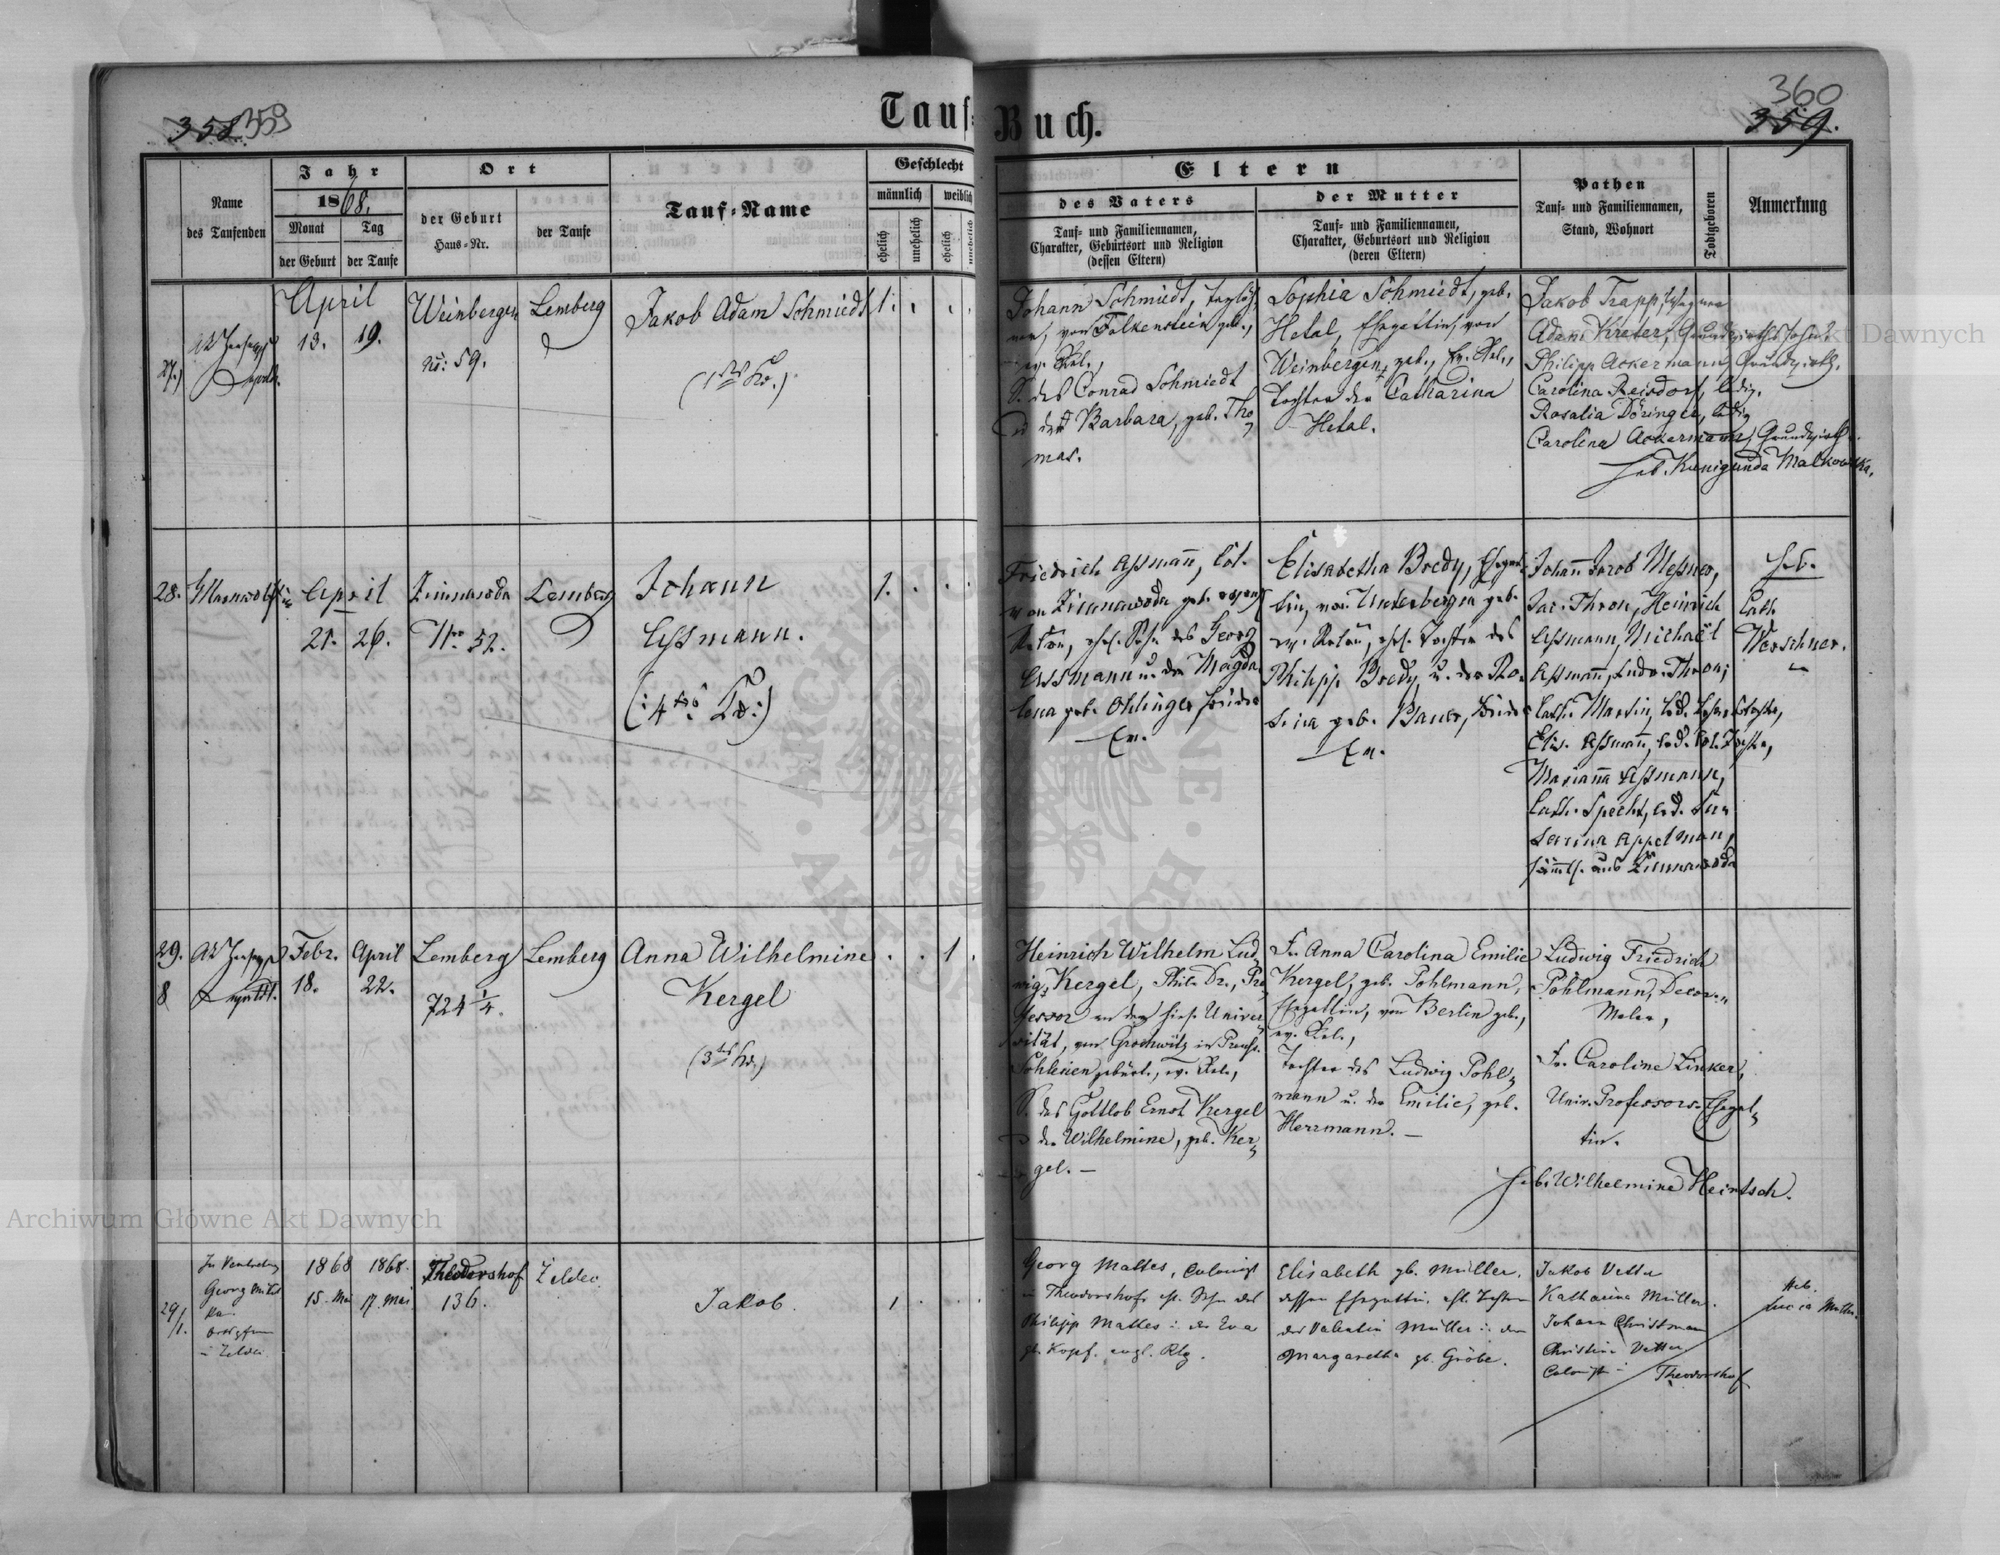 358. 359
Tauf-Buch.
360
359.
Name
des Taufenden
Jahr
1868.
Monat
der Geburt
Tag
der Taufe
Ort
der Geburt
Haus-Nr.
der Taufe
Tauf-Name
Geschlecht
männlich
weiblich
ehelich
unehelich
ehelich
unehelich
Eltern
des Vaters
Tauf- und Familiennamen,
Charakter, Geburtsort und Religion
(dessen Eltern)
der Mutter
Tauf- und Familiennamen,
Charakter, Geburtsort und Religion
(deren Eltern)
Pathen
Tauf- und Familiennamen,
Stand, Wohnort
Todtgeboren
Anmerkung
27.)
April
13. 19.
Weinbergen
No: 59.
Lemberg
Jakob Adam Schmiedt
1.
Johann Schmiedt,
von Falkenstein geb.,
ev. Rel.,
S. des Conrad Schmiedt
u der Barbara, geb. Tho-
mas.
Sophia Schmiedt, geb.
Hetal, Ehegattin, von
Weinbergen, geb., Ev. Rel.,
Tochter der Catharina
Hetal.
Jakob Trapp,
Adam Kreter,
Philipp Ackermann, Grundwirth,
Carolina Reisdorf, ledig.
Rosalia Döringer, ledig
Carolina Ackermann, Grundwirth
Heb. Kunigunda Malkowska.
28.
April
21. 26.
Zimnawoda
Nro 52.
Lemberg
Johann
Assmann.
1.
Friedrich Assmann, Col.
von Zimnawoda geb.
des Georg
Assmann u. der Magda-
lena geb. Ohlinger beider
Ev.
Elisabetha Bredy, Ehegat-
tin, von Unterbergen geb.
ehel. Tochter des
Philipp Bredy u. der Ro-
sina geb. Bauer, beide
Ev.
Johann Jacob Messner,
Jac. Thron, Heinrich
Assmann, Michael
Assmann, Ludw. Thron,
Cath. Martin, led.
Elis. Assmann, led. Col. Tochter,
Marianna Assmann,
Cath. Specht, led. Su-
sanna Appelman,
sämtl. aus Zimnawoda
Heb.
Cath
Werschner.
29.
8
Febr.
18.
April
22.
Lemberg
724 1/4.
Lemberg
Anna Wilhelmine
Kergel
1
Heinrich Wilhelm Lud-
wig Kergel, Phil. Dr., Pro-
fessor an der hies. Univer-
sität, von Grochwitz in Preuss.
Schlesien gebürt., ev. Rel.,
S. des Gottlob Ernst Kergel
u der Wilhelmine, geb. Ker-
gel. —
Fr. Anna Carolina Emilie
Kergel, geb. Pohlmann,
Ehegattin, von Berlin geb.,
ev. Rel.,
Tochter des Ludwig Pohl-
mann u. der Emilie, geb.
Herrmann. —
Ludwig Friedrich
Pohlmann, Decor.-
Maler,
Fr. Caroline Linker,
Univ. Professors-Ehegat-
tin.
Heb. Wilhelmine Heintsch.
29/1.
In Vertretung
Georg
1868
15. Mai
1868.
17. Mai
Theodorshof
136.
Jakob.
1
Georg Mattes, Colonist
in Theodorshof, ehl. Sohn des
Philipp Mattes u. der Eva
gb. Kopf. evgl. Rlg.
Elisabeth gb. Müller.
dessen Ehegattin, ehl. Tochter
des Valentin Müller u. der
Margaretha gb. Gröbe.
Jakob Vetter
Katharina Müller.
Johann Christmann
Christine Vetter
Colonist in Theodorshof
Heb.
Lucia Müller.
Archiwum Główne Akt Dawnych
Akt Dawnych